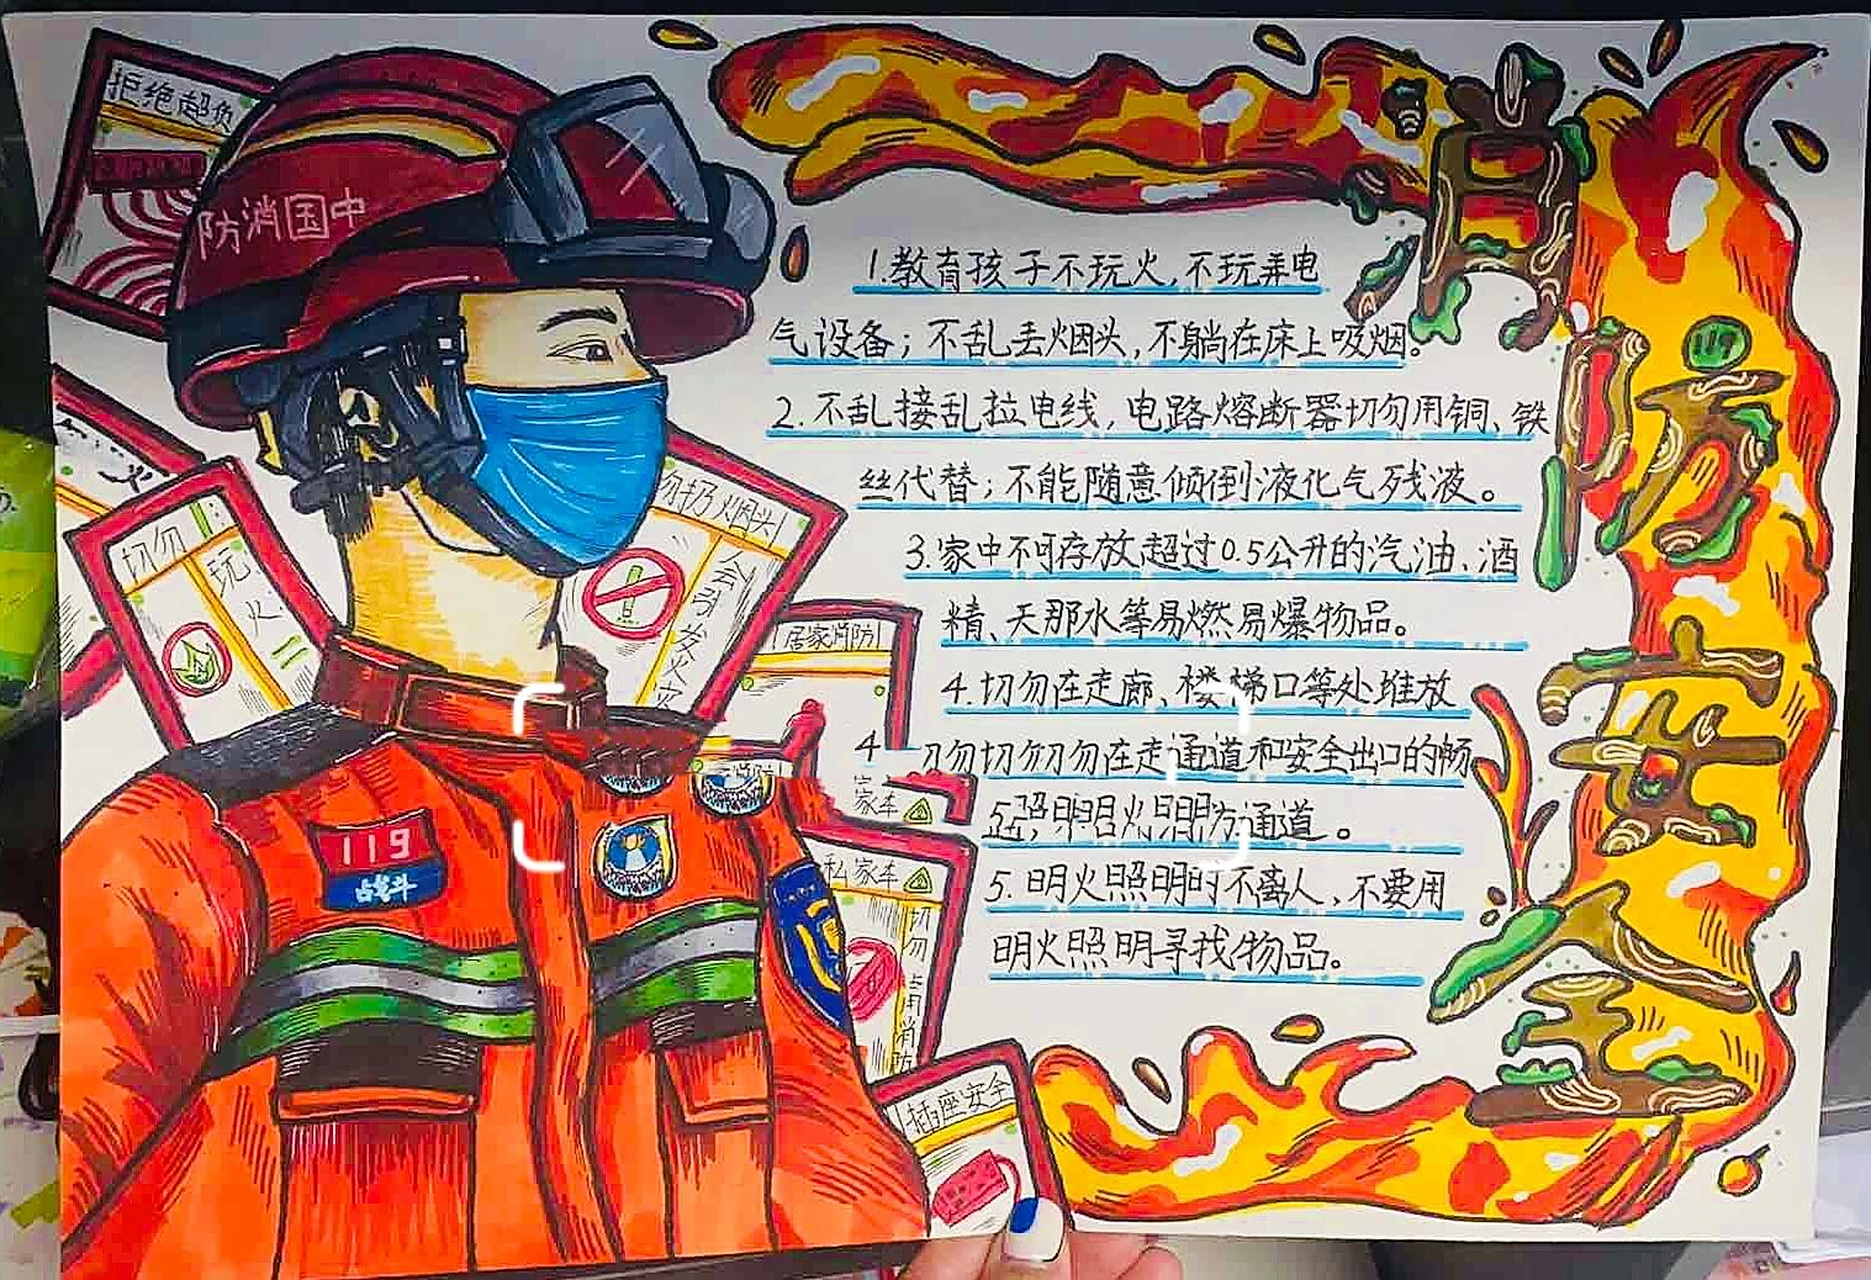 消防安全
拒绝超负
防消国中
切勿
玩火
勿扔烟头
会引发火灾
居家消防
119
战斗
家车
私家车
切勿占用消防
插座安全
1.教育孩子不玩火,不玩弄电
气设备;不乱丢烟头,不躺在床上吸烟。
2.不乱接乱拉电线,电路熔断器切勿用铜、铁
丝代替;不能随意倾倒液化气残液。
3.家中不可存放超过0.5公升的汽油、酒
精、天那水等易燃易爆物品。
4.切勿在走廊、楼梯口等处堆放
4 勿切勿勿在走通道和安全出口的畅
通道。
5.明火照明时不离人,不要用
明火照明寻找物品。